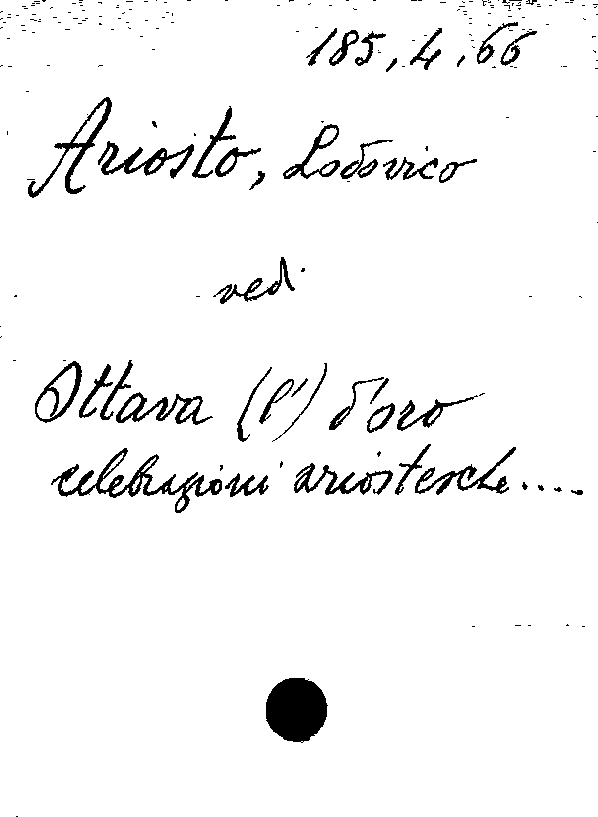 185, 4, 66
Ariosto, Lodovico
vedi
Ottava (l') d'oro
celebrazioni ariostesche....